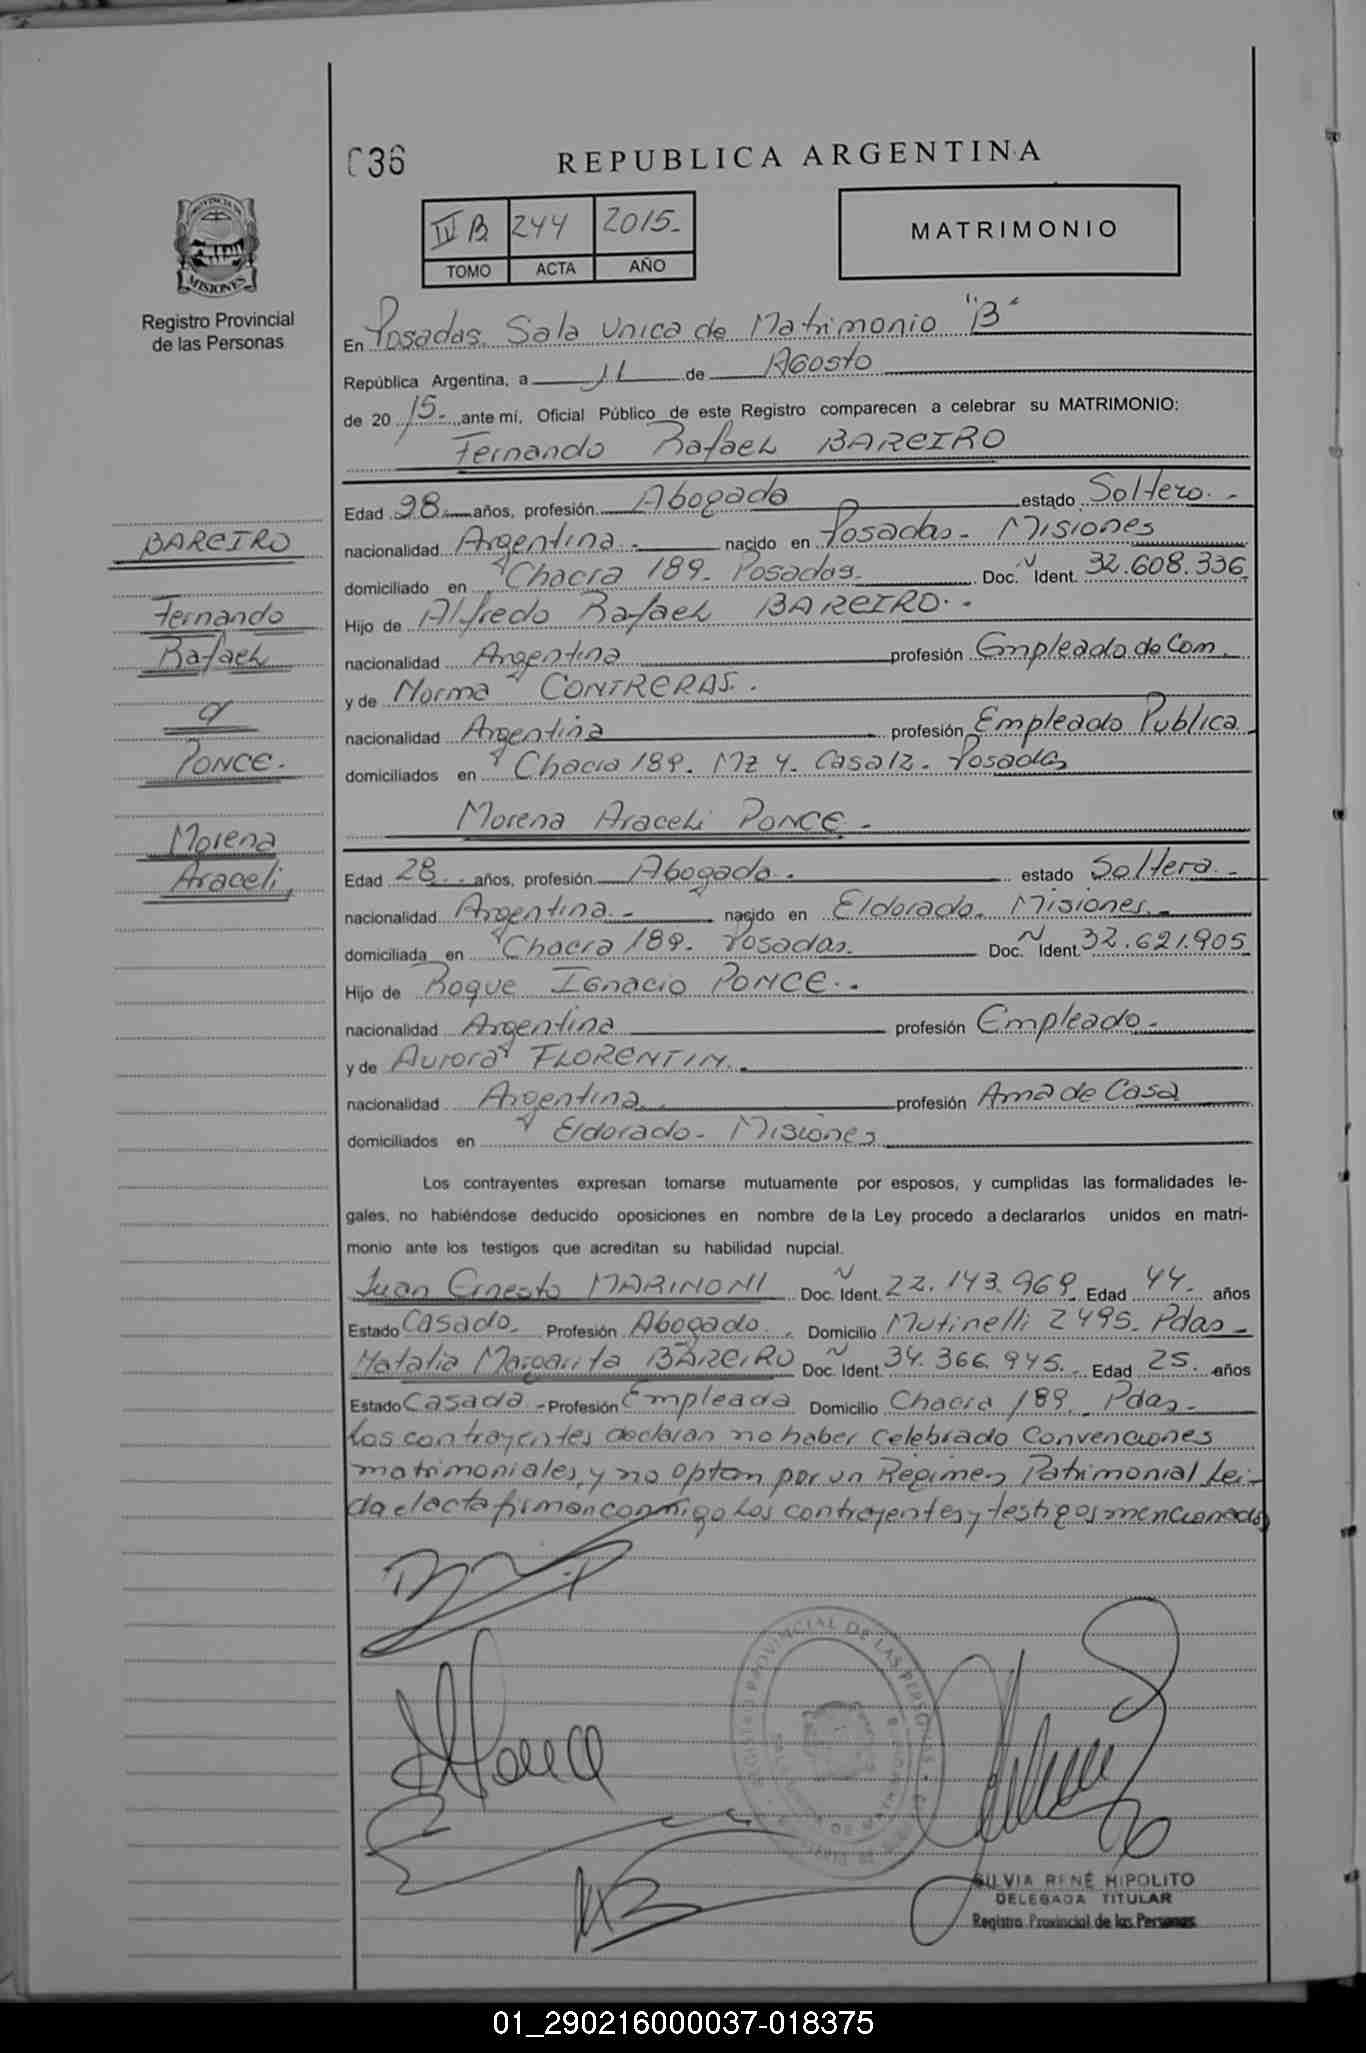 036
REPUBLICA ARGENTINA
PROVINCIA DE
MISIONES
Registro Provincial
de las Personas
IV B 244 2015.-
TOMO ACTA AÑO
MATRIMONIO
En Posadas. Sala Unica de Matrimonio "B"
República Argentina, a 11 de Agosto
de 20 15.- ante mí, Oficial Público de este Registro comparecen a celebrar su MATRIMONIO:
Fernando Rafael BAREIRO
Edad 28 años, profesión Abogado estado Soltero.-
nacionalidad Argentina.- nacido en Posadas- Misiones
domiciliado en Chacra 189- Posadas. Doc. N Ident. 32.608.336
Hijo de Alfredo Rafael BAREIRO.-
nacionalidad Argentina profesión Empleado de Com.
y de Norma CONTRERAS.-
nacionalidad Argentina profesión Empleado Publica
domiciliados en Chacra 189- Mz 4- Casa 12- Posadas
Morena Araceli PONCE.-
Edad 28 años, profesión Abogada. estado Soltera.-
nacionalidad Argentina.- nacido en Eldorado- Misiones.-
domiciliada en Chacra 189- Posadas. Doc. N Ident. 32.621.905
Hijo de Roque Ignacio PONCE.-
nacionalidad Argentina profesión Empleado-
y de Aurora FLORENTIN.
nacionalidad Argentina profesión Ama de Casa
domiciliados en Eldorado- Misiones
BAREIRO
Fernando
Rafael
a
PONCE.
Morena
Araceli,
Los contrayentes expresan tomarse mutuamente por esposos, y cumplidas las formalidades le-
gales, no habiéndose deducido oposiciones en nombre de la Ley procedo a declararlos unidos en matri-
monio ante los testigos que acreditan su habilidad nupcial.
Juan Ernesto MARINONI Doc. N Ident. 22.143.969 Edad 44 años
Estado Casado. Profesión Abogado. Domicilio Mutinelli 2495- Pdas-
Natalia Margarita BAREIRO Doc. N Ident. 34.366.945. Edad 25. años
Estado Casada- Profesión Empleada Domicilio Chacra 189- Pdas-
Los contrayentes declaran no haber Celebrado Convenciones
matrimoniales, y no optan por un Régimen Patrimonial Lei-
da el acta firman conmigo Los contrayentes y testigos mencionados
REGISTRO PROVINCIAL DE LAS PERSONAS
SILVIA RENÉ HIPOLITO
DELEGADA TITULAR
Registro Provincial de las Personas
01_290216000037-018375